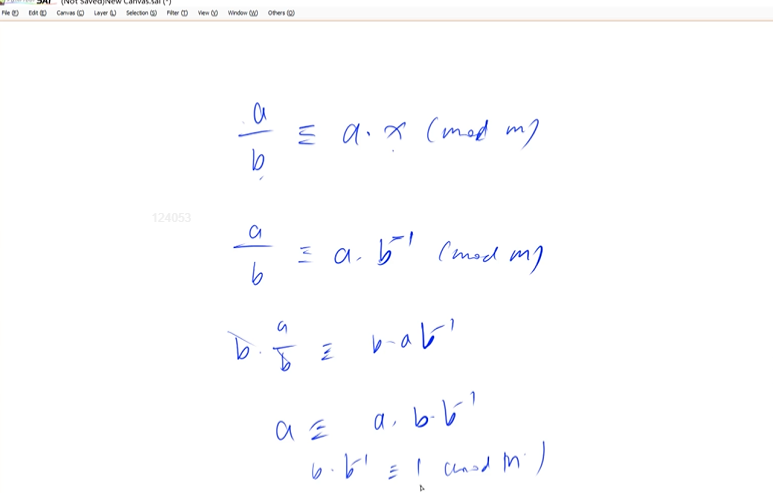 (Not Saved)New Canvas.sai (*)
File (F) Edit (E) Canvas (C) Layer (L) Selection (S) Filter (T) View (V) Window (W) Others (O)
a/b ≡ a · x (mod m)
124053
a/b ≡ a · b⁻¹ (mod m)
b · a/b ≡ b · a b⁻¹
a ≡ a · b · b⁻¹
b · b⁻¹ ≡ 1 (mod m)